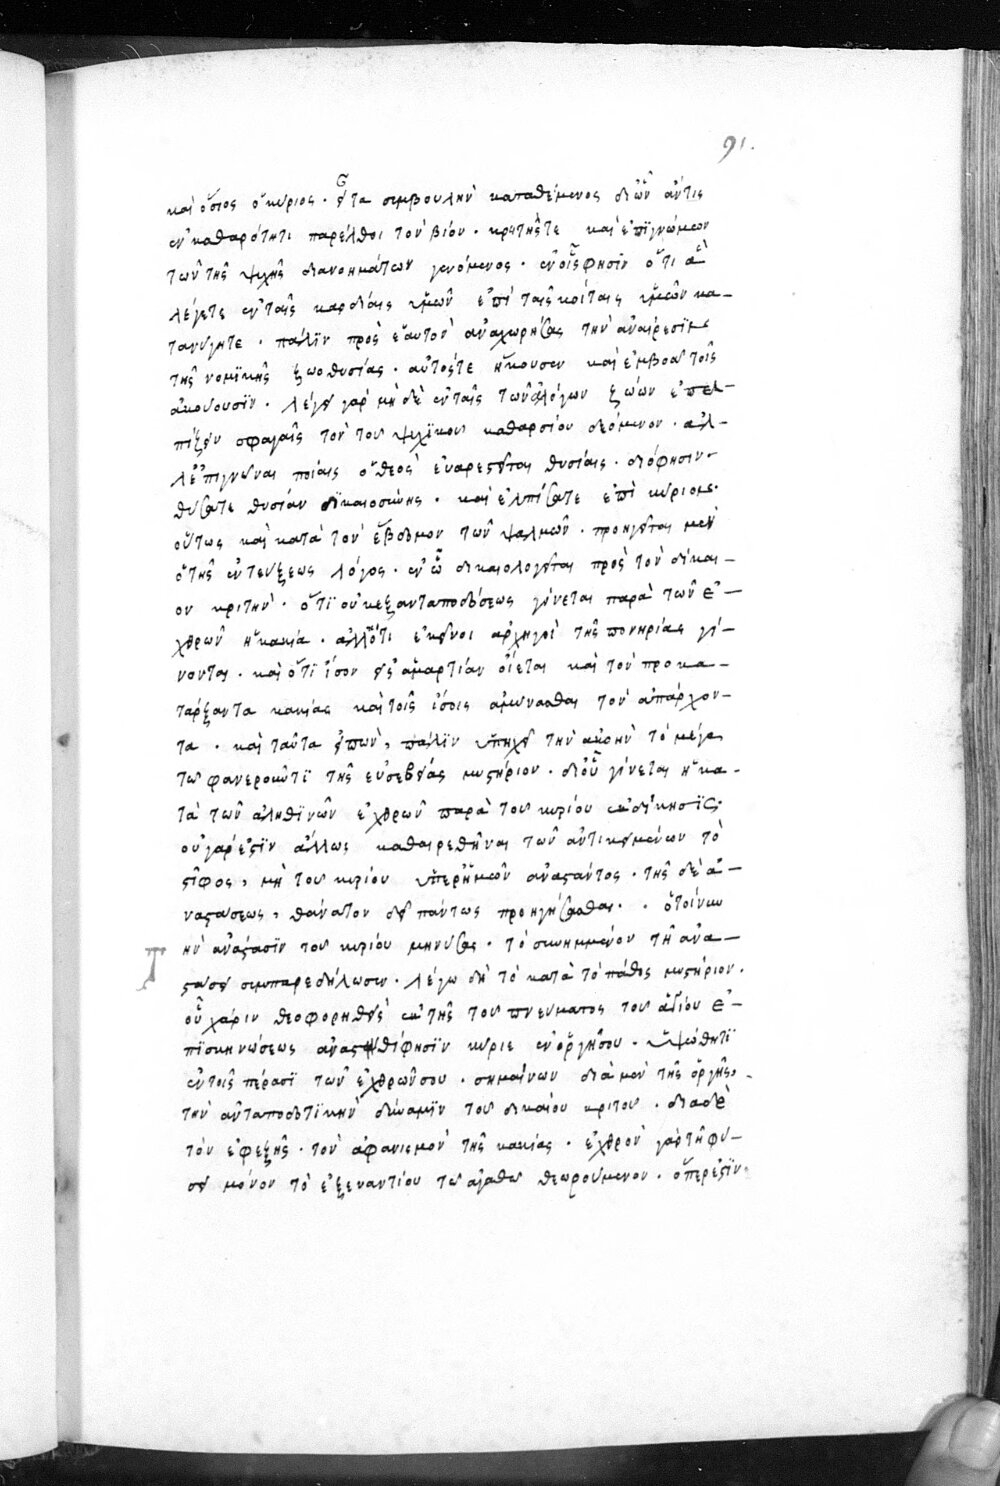 91.
καὶ ὅσιος ὁ κύριος · εἶτα συμβουλὴν καταθέμενος δι ὧν ἄν τις
ἐν καθαρότητι παρέλθοι τὸν βίον · κριτής τε καὶ ἐπιγνώμων
τῶν τῆς ψυχῆς διανοημάτων γενόμενος · ἐν οἷς φησὶν ὅτι ἃ
λέγετε ἐν ταῖς καρδίαις ὑμῶν ἐπὶ ταῖς κοίταις ὑμῶν κα-
τανύγητε · πάλιν πρὸς ἑαυτὸν ἀναχωρήσας τὴν ἀναίρεσιν
τῆς νομικῆς ζωοθυσίας · αὐτός τε ἤκουσεν καὶ ἐμβοᾶ τοῖς
ἀκούουσιν · λέγει γὰρ μὴ δὲ ἐν ταῖς τῶν ἀλόγων ζώων ἐπελ-
πίζειν σφαγαῖς τὸν του ψυχικου καθαρσίου δεόμενον · ἀλ-
λ' ἐπιγνῶναι ποίαις ὁ θεὸς εὐαρεστεῖται θυσίαις · διό φησιν ·
θύσατε θυσίαν δικαιοσύνης · καὶ ἐλπίσατε ἐπὶ κύριον ·
οὕτως καὶ κατὰ τὸν ἕβδομον τῶν ψαλμῶν · προηγεῖται μὲν
ὁ τῆς ἐντεύξεως λόγος · ἐν ᾧ δικαιολογεῖται πρὸς τὸν δίκαι-
ον κριτὴν · ὅτι οὐκ ἐξ ἀνταποδόσεως γίνεται παρὰ τῶν ἐ-
χθρῶν ἡ κακία · ἀλλ' ὅτι ἐκεῖνοι ἀρχηγοὶ τῆς πονηρίας γί-
νονται · καὶ ὅτι ἴσον εἰς ἁμαρτίαν οἴεται καὶ τὸν προκα-
τάρξαντα κακίας καὶ τοῖς ἴσοις ἀμύνασθαι τὸν ὑπάρχον-
τα · καὶ ταῦτα εἰπὼν, πάλιν ὑπηχεῖ τὴν ἀκοὴν τὸ μέγα
τω φανερωκότι τῆς εὐσεβείας μυστήριον · δι οὗ γίνεται ἡ κα-
τὰ τῶν ἀληθινῶν ἐχθρῶν παρὰ του κυρίου ἐκδίκησις ·
οὐ γάρ ἐστιν ἄλλως καθαιρεθῆναι τῶν ἀντικειμένων τὸ
στῖφος, μὴ του κυρίου ὑπὲρ ἡμῶν ἀναστάντος · τῆς δὲ ἀ-
ναστάσεως, θάνατον δεῖ πάντως προηγήσασθαι · ὁ τοίνυν
τὴν ἀνάστασιν του κυρίου μηνύσας · τὸ συνημμένον τῆ ἀνα-
στάσει συμπαρεδήλωσεν · λέγω δὴ τὸ κατὰ τὸ πάθος μυστήριον ·
οὗ χάριν θεοφορηθεὶς ἐκ τῆς του πνεύματος του ἁγίου ἐ-
πισκηνώσεως ἀνάστηθί φησιν κύριε ἐν ὀργῆ σου · ὑψώθητι
ἐν τοῖς πέρασι τῶν ἐχθρῶν σου · σημαίνων διὰ μὲν τῆς ὀργῆς,
τὴν ἀνταποδοτικὴν δύναμιν του δικαίου κριτου · διὰ δὲ
τῶν ἐφεξῆς · τὸν ἀφανισμὸν τῆς κακίας · ἐχθρὸν γὰρ τῆ φύ-
σει μόνον τὸ ἐξ ἐναντίου τω ἀγαθω θεωρούμενον · ὅπερ ἐστὶν